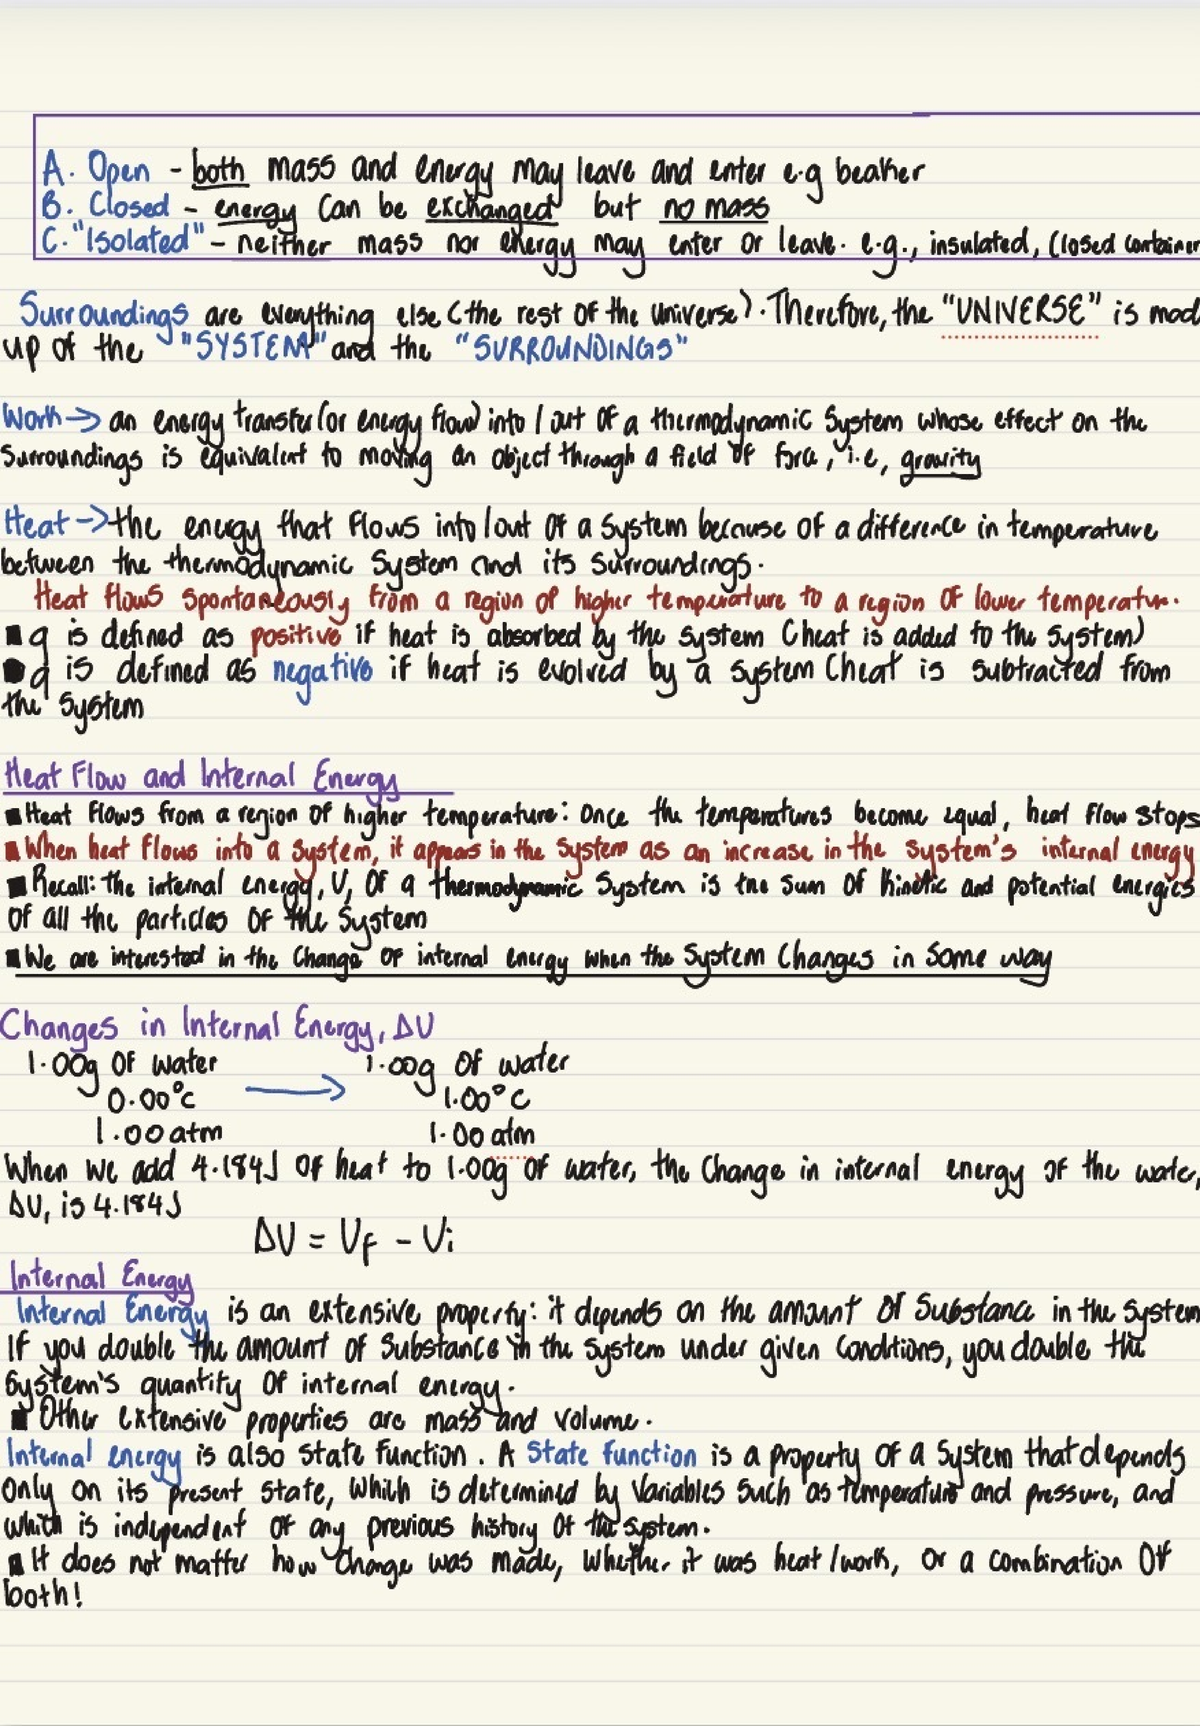 A. Open - both mass and energy may leave and enter e.g beaker
B. Closed - energy can be exchanged but no mass
C. "Isolated" - neither mass nor energy may enter or leave. e.g., insulated, (closed container
Surroundings are everything else (the rest of the universe). Therefore, the "UNIVERSE" is mad
up of the "SYSTEM" and the "SURROUNDINGS"
Work → an energy transfer (or energy flow) into / out of a thermodynamic system whose effect on the
surroundings is equivalent to moving an object through a field of force, i.e, gravity
Heat → the energy that flows into / out of a system because of a difference in temperature
between the thermodynamic system and its surroundings.
Heat flows spontaneously from a region of higher temperature to a region of lower temperature.
■ q is defined as positive if heat is absorbed by the system (heat is added to the system)
■ q is defined as negative if heat is evolved by a system (heat is subtracted from
the system
Heat Flow and Internal Energy
■ Heat flows from a region of higher temperature: Once the temperatures become equal, heat flow stops
■ When heat flows into a system, it appears in the system as an increase in the system's internal energy
■ Recall: the internal energy, U, of a thermodynamic system is the sum of kinetic and potential energies
of all the particles of the system
■ We are interested in the change of internal energy when the system changes in some way
Changes in Internal Energy, ΔU
1.00g of water → 1.00g of water
0.00°C 1.00°C
1.00 atm 1.00 atm
When we add 4.184J of heat to 1.00g of water, the change in internal energy of the water,
ΔU, is 4.184J
ΔU = Uf - Ui
Internal Energy
Internal Energy is an extensive property: it depends on the amount of substance in the system
If you double the amount of substance in the system under given conditions, you double the
system's quantity of internal energy.
■ Other extensive properties are mass and volume.
Internal energy is also state function. A state function is a property of a system that depends
only on its present state, which is determined by variables such as temperature and pressure, and
which is independent of any previous history of the system.
■ It does not matter how change was made, whether it was heat / work, or a combination of
both!